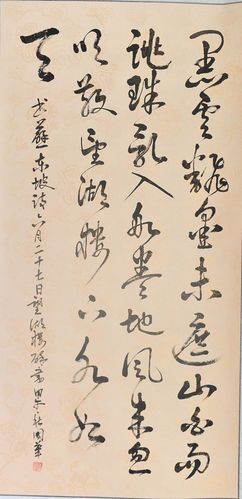 黑雲翻墨未遮山白雨
跳珠亂入船卷地風來忽
吹散望湖樓下水如
天
书蘇東坡詩六月二十七日望湖樓醉書